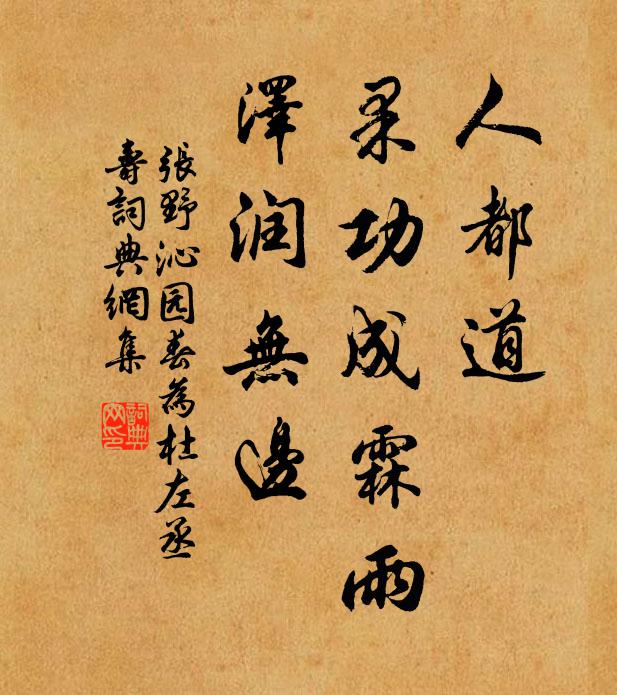 人都道
果功成霖雨
澤润無邊
張野沁园春為杜左丞
壽詞典網集
詞典
网印